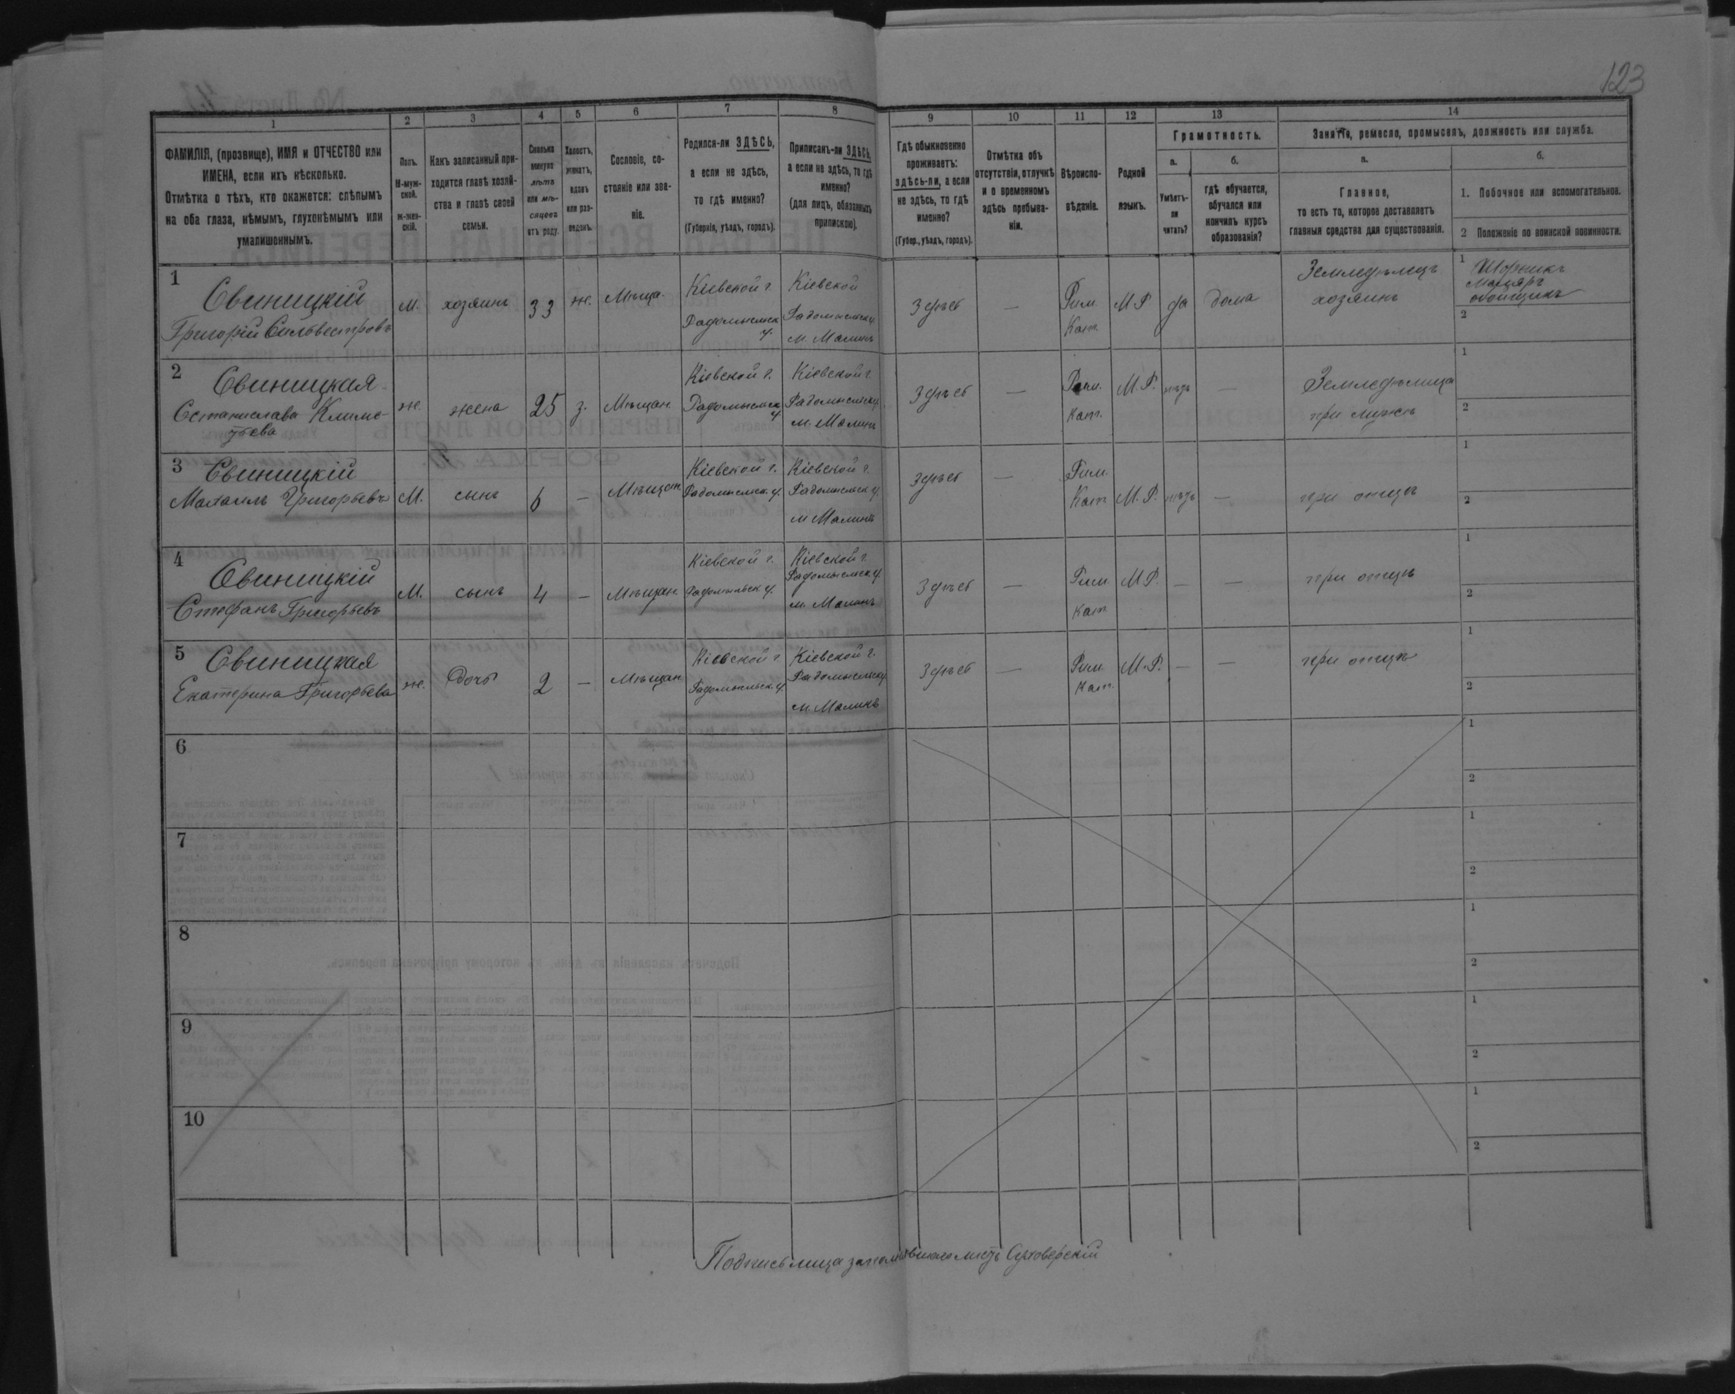 123
1
2
3
4
5
6
7
8
9
10
11
12
13
14
ФАМИЛІЯ, (прозвище), ИМЯ и ОТЧЕСТВО или
ИМЕНА, если ихъ нѣсколько.
Отмѣтка о тѣхъ, кто окажется: слѣпымъ
на оба глаза, нѣмымъ, глухонѣмымъ или
умалишоннымъ.
Полъ.
М-муж-
ской.
ж-жен-
скій.
Какъ записанный при-
ходится главѣ хозяй-
ства и главѣ своей
семьи.
Сколько
минуло
лѣтъ
или мѣ-
сяцевъ
отъ роду.
Холостъ,
женатъ,
вдовъ
или раз-
веденъ.
Сословіе, со-
стояніе или зва-
ніе.
Родился-ли ЗДѢСЬ,
а если не здѣсь,
то гдѣ именно?
(Губернія, уѣздъ, городъ).
Приписанъ-ли ЗДѢСЬ,
а если не здѣсь, то гдѣ
именно?
(для лицъ, обязанныхъ
припискою).
Гдѣ обыкновенно
проживаетъ:
здѣсь-ли, а если
не здѣсь, то гдѣ
именно?
(Губер., уѣздъ, городъ).
Отмѣтка объ
отсутствіи, отлучкѣ
и о временномъ
здѣсь пребыва-
ніи.
Вѣроиспо-
вѣданіе.
Родной
языкъ.
Грамотность.
а.
Умѣетъ-
ли
читать?
б.
гдѣ обучается,
обучался или
кончилъ курсъ
образованія?
Занятіе, ремесло, промыселъ, должность или служба.
а.
Главное,
то есть то, которое доставляетъ
главныя средства для существованія.
б.
1. Побочное или вспомогательное.
2 Положеніе по воинской повинности.
1
Свиницкій
Григорій Сильвестровъ
м.
хозяинъ
33
ж.
Мѣща.
Кіевской г.
Радомысльск у.
Кіевской
Радомысльск у.
м. Малинъ
Здѣсь
—
Рим.
Кат.
М.Р.
да
дома
Земледѣлецъ
хозяинъ
1
2
2
Свиницкая
Станислава Климе-
тьева
ж.
жена
25
з.
Мѣщан.
Кіевской г.
Радомысльск у.
Кіевской г.
Радомысльск у.
м. Малинъ
Здѣсь
—
Рим.
Кат.
М.Р.
нѣтъ
—
Земледѣлица
при мужѣ
1
2
3
Свиницкій
Михаилъ Григорьевъ
М.
сынъ
6
—
Мѣщан.
Кіевской г.
Радомысльск у.
Кіевской г.
Радомысльск у.
м. Малинъ
Здѣсь
Рим.
Кат.
М.Р.
нѣтъ
—
при отцѣ
1
2
4
Свиницкій
Стефанъ Григорьевъ
М.
сынъ
4
—
Мѣщан.
Кіевской г.
Радомысльск у.
Кіевской г.
Радомысльск у.
м. Малинъ
Здѣсь
—
Рим.
Кат.
М.Р.
—
—
при отцѣ
1
2
5
Свиницкая
Екатерина Григорьева
ж.
дочь
2
—
Мѣщан.
Кіевской г.
Радомысльск у.
Кіевской г.
Радомысльск у.
м. Малинъ
Здѣсь
—
Рим.
Кат.
М.Р.
—
—
при отцѣ
1
2
6
1
2
7
1
2
8
1
2
9
1
2
10
1
2
Подпись лица заполнявшаго листъ Суховерскій